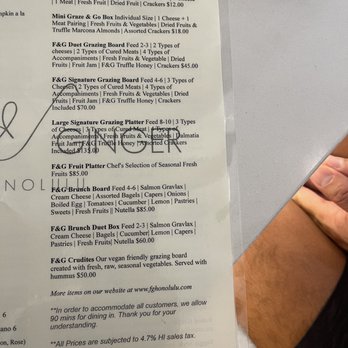 1 Meat | Fresh Fruit | Dried Fruit | Crackers $12.00
pkin a la
Mini Graze & Go Box Individual Size | 1 Cheese + 1
Meat Pairing | Fresh Fruits & Vegetables | Dried Fruits &
Truffle Marcona Almonds | Assorted Crackers $18.00
F&G Duet Grazing Board Feed 2-3 | 2 Types of
Cheeses | 2 Types of Cured Meats | 4 Types of
Accompaniments | Fresh Fruits & Vegetable | Dried
Fruits | Fruit Jam | F&G Truffle Honey | Crackers $45.00
F&G Signature Grazing Board Feed 4-6 | 3 Types of
Cheeses | 2 Types of Cured Meats | 4 Types of
Accompaniments | Fresh Fruits & Vegetables | Dried
Fruits | Fruit Jam | F&G Truffle Honey | Crackers
Included $70.00
Large Signature Grazing Platter Feed 8-10 | 3 Types
of Cheeses | 3 Types of Cured Meat | Types of
Accompaniments | Fresh Fruits & Vegetables | Dalmatia
Fruit Jam | F&G Truffle Honey | Assorted Crackers
Included $135.00
GINGER
F&G Fruit Platter Chef's Selection of Seasonal Fresh
Fruits $85.00
ONOLULU
F&G Brunch Board Feed 4-6 | Salmon Gravlax |
Cream Cheese | Assorted Bagels | Capers | Onions |
Boiled Egg | Tomatoes | Cucumber | Lemon | Pastries |
Sweets | Fresh Fruits | Nutella $85.00
F&G Brunch Duet Box Feed 2-3 | Salmon Gravlax |
Cream Cheese | Bagels | Cucumber| Lemon | Capers |
Pastries | Fresh Fruits| Nutella $60.00
F&G Crudites Our vegan friendly grazing board
created with fresh, raw, seasonal vegetables. Served with
hummus $50.00
More items on our website at www.fghonolulu.com
**In order to accommodate all customers, we allow
90 mins for dining in. Thank you for your
understanding.
**All Prices are subjected to 4.7% HI sales tax.
6
ano 6
on, Rose)